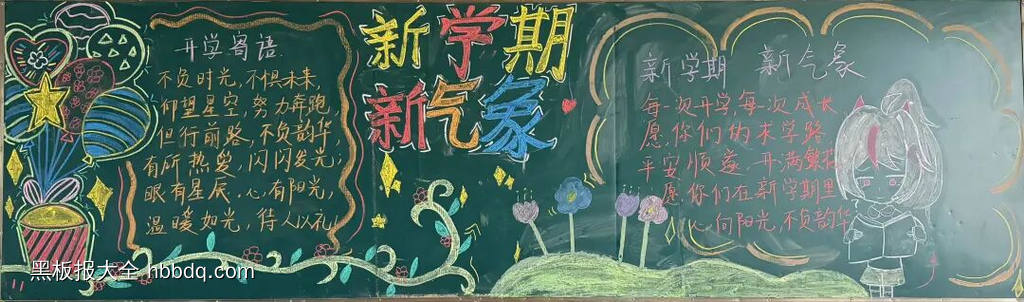 开学寄语
不负时光,不惧未来,
仰望星空,努力奔跑,
但行前路,不负韵华,
有所热爱,闪闪发光;
眼有星辰,心有阳光,
温暖如光,待人以礼
新学期
新气象
新学期 新气象
每一次开学每一次成长
愿,你们的未学路
平安顺遂,开满繁花
愿你们在新学期里
心向阳光,不负韵华
黑板报大全 hbbdq.com